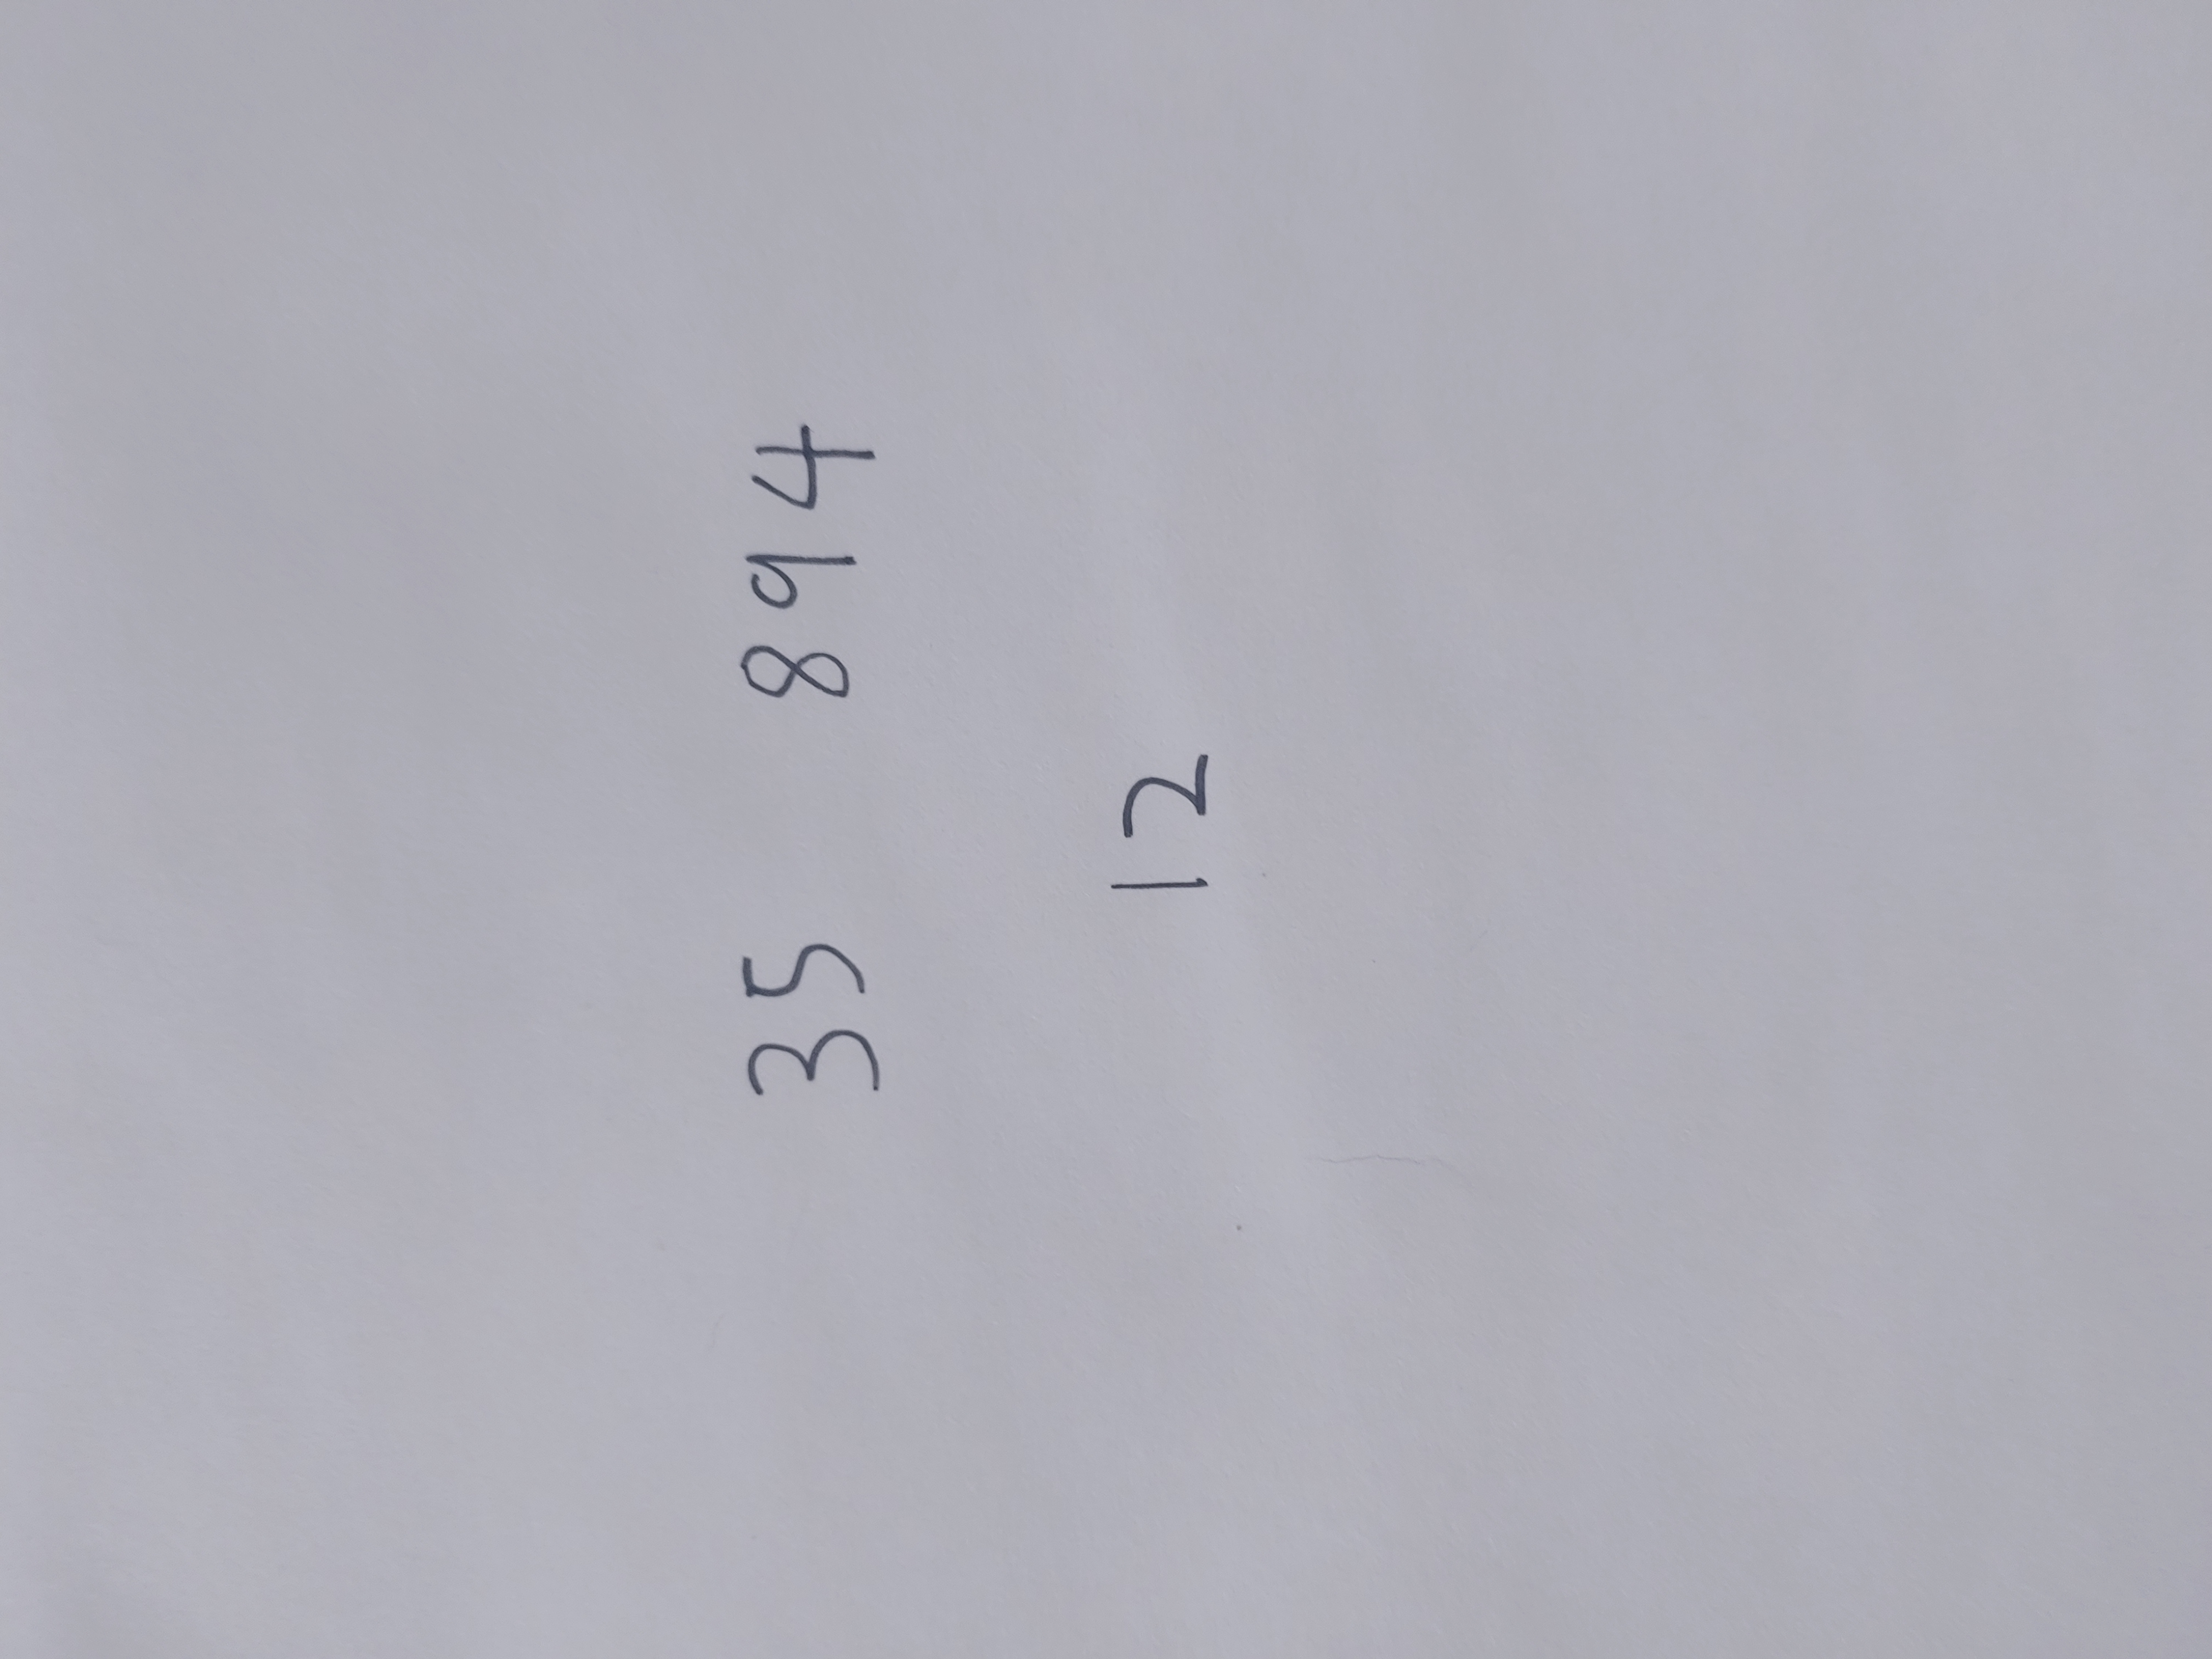 35 894
12